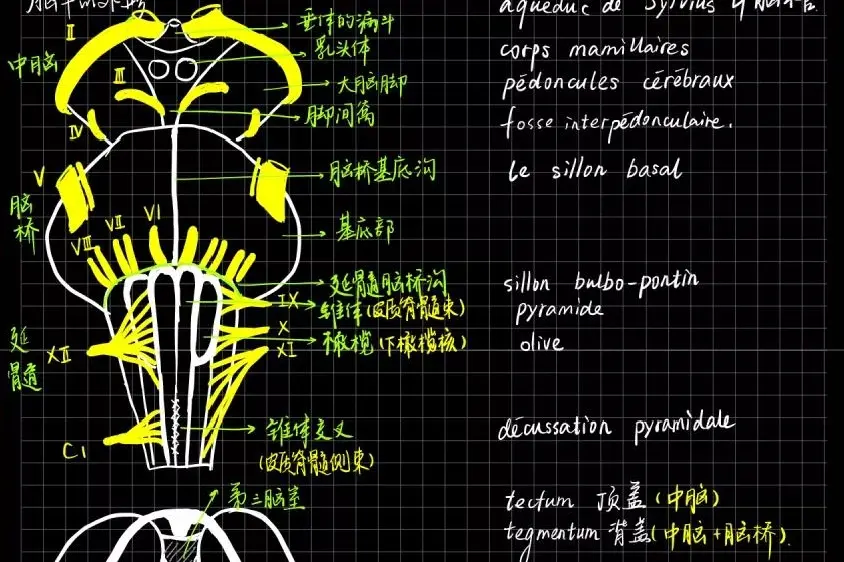 aqueduc de Sylvius
II
垂体的漏斗
乳头体
corps mamillaires
中脑
III
大脑脚
pédoncules cérébraux
IV
脚间窝
fosse interpédonculaire.
V
脑桥基底沟
le sillon basal
脑桥
VI
VII
VIII
基底部
延髓脑桥沟
sillon bulbo-pontin
IX
锥体(皮质脊髓束)
pyramide
延髓
XII
X
橄榄(下橄榄核)
olive
XI
C1
锥体交叉
(皮质脊髓侧束)
décussation pyramidale
第三脑室
tectum 顶盖(中脑)
tegmentum 背盖(中脑+脑桥).